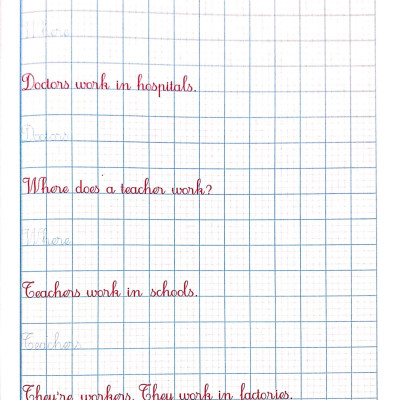 Where
Doctors work in hospitals.
Doctors
Where does a teacher work?
Where
Teachers work in schools.
Teachers
They're workers. They work in factories.